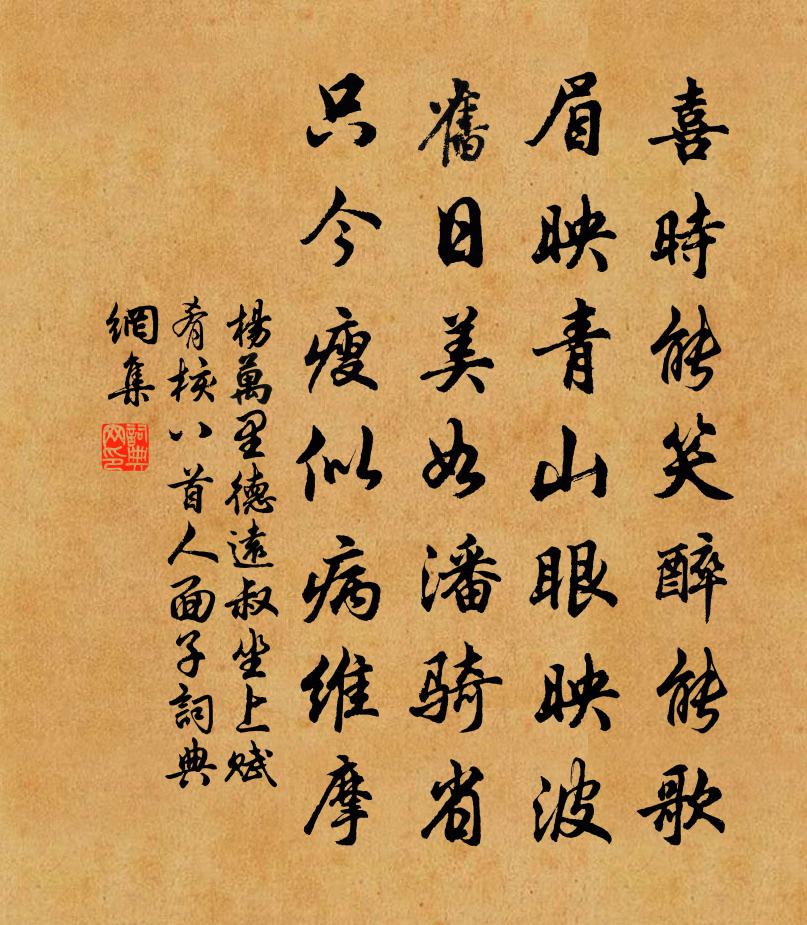 喜時能笑醉能歌
眉映青山眼映波
舊日美如潘騎省
只今瘦似病維摩
楊萬里德遠叔坐上賦
肴核八首人面子詞典
網集
詞典
网印